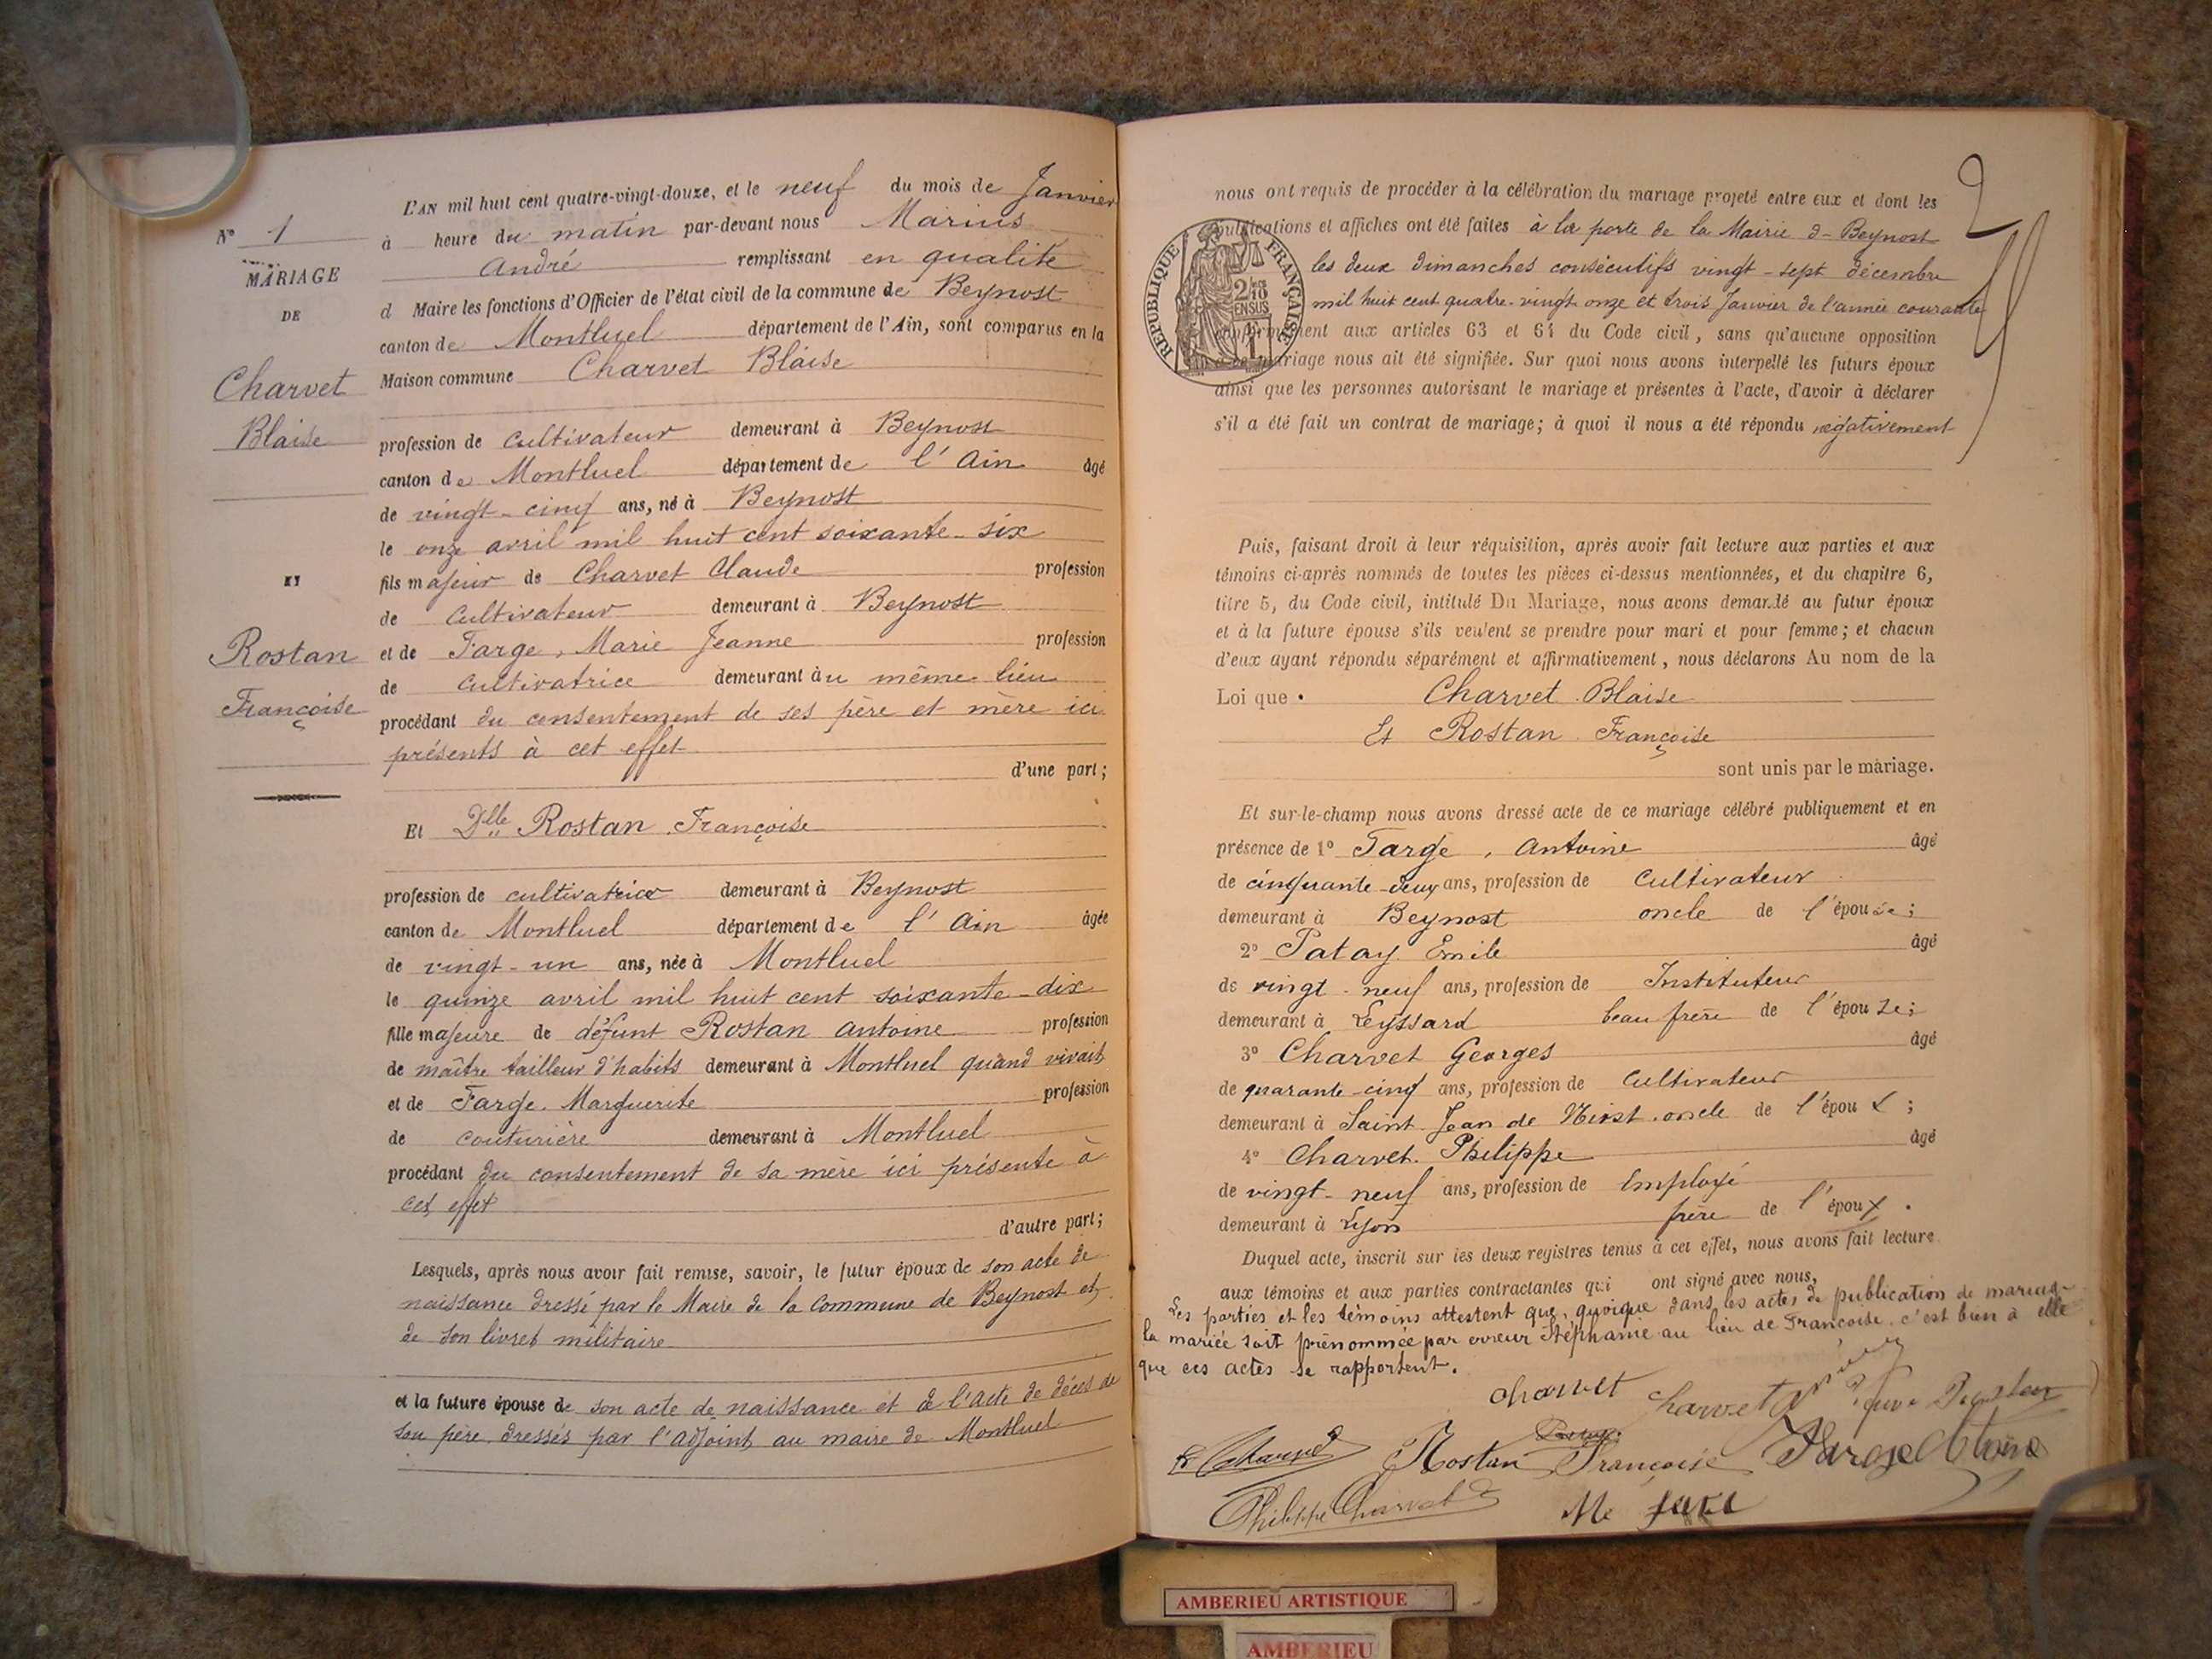 L'AN mil huit cent quatre-vingt-douze, et le neuf du mois de Janvier
à heure du matin par-devant nous Marius
André remplissant en qualité
d Maire les fonctions d'Officier de l'état civil de la commune de Beynost
canton de Montluel département de l'Ain, sont comparus en la
Maison commune Charvet Blaise
profession de cultivateur demeurant à Beynost
canton de Montluel département de l'Ain âgé
de vingt-cinq ans, né à Beynost
le onze avril mil huit cent soixante-six
fils majeur de Charvet Claude profession
de cultivateur demeurant à Beynost
et de Farge, Marie Jeanne profession
de cultivatrice demeurant au même lieu
procédant du consentement de ses père et mère ici
présents à cet effet
d'une part;
Et Dlle Rostan Françoise
profession de cultivatrice demeurant à Beynost
canton de Montluel département de l'Ain âgée
de vingt-un ans, née à Montluel
le quinze avril mil huit cent soixante-dix
fille majeure de défunt Rostan Antoine profession
de maître tailleur d'habits demeurant à Montluel quand vivait
et de Farge Marguerite profession
de couturière demeurant à Montluel
procédant du consentement de sa mère ici présente à
cet effet
d'autre part;
Lesquels, après nous avoir fait remise, savoir, le futur époux de son acte de
naissance dressé par le Maire de la commune de Beynost et
de son livret militaire
et la future épouse de son acte de naissance et de l'acte de décès de
son père dressés par l'adjoint au maire de Montluel
N° 1
MARIAGE
DE
Charvet
Blaise
ET
Rostan
Françoise
2
nous ont requis de procéder à la célébration du mariage projeté entre eux et dont les
publications et affiches ont été faites à la porte de la Mairie de Beynost
les deux dimanches consécutifs vingt-sept décembre
mil huit cent quatre-vingt-onze et trois Janvier de l'année courante
conformément aux articles 63 et 64 du Code civil, sans qu'aucune opposition
au mariage nous ait été signifiée. Sur quoi nous avons interpellé les futurs époux
ainsi que les personnes autorisant le mariage et présentes à l'acte, d'avoir à déclarer
s'il a été fait un contrat de mariage; à quoi il nous a été répondu négativement
REPUBLIQUE FRANÇAISE
2/10 EN SUS
1f
Puis, faisant droit à leur réquisition, après avoir fait lecture aux parties et aux
témoins ci-après nommés de toutes les pièces ci-dessus mentionnées, et du chapitre 6,
titre 5, du Code civil, intitulé Du Mariage, nous avons demandé au futur époux
et à la future épouse s'ils veulent se prendre pour mari et pour femme; et chacun
d'eux ayant répondu séparément et affirmativement, nous déclarons Au nom de la
Loi que Charvet Blaise
Et Rostan Françoise
sont unis par le mariage.
Et sur-le-champ nous avons dressé acte de ce mariage célébré publiquement et en
présence de 1° Farge, Antoine âgé
de cinquante-deux ans, profession de cultivateur
demeurant à Beynost oncle de l'épouse;
2° Patay Emile âgé
de vingt-neuf ans, profession de Instituteur
demeurant à Leyssard beau frère de l'épouze;
3° Charvet Georges âgé
de quarante-cinq ans, profession de cultivateur
demeurant à Saint Jean de Niost oncle de l'époux;
4° Charvet Philippe âgé
de vingt-neuf ans, profession de Employé
demeurant à Lyon frère de l'époux.
Duquel acte, inscrit sur les deux registres tenus à cet effet, nous avons fait lecture
aux témoins et aux parties contractantes qui ont signé avec nous,
Les parties et les témoins attestent que, quoique dans les actes de publication de mariage
la mariée soit prénommée par erreur Stéphanie au lieu de Françoise, c'est bien à elle
que ces actes se rapportent.
Charvet Charvet
Rostan Françoise Farge Antoine
Philippe Charvet
AMBERIEU ARTISTIQUE
AMBERIEU